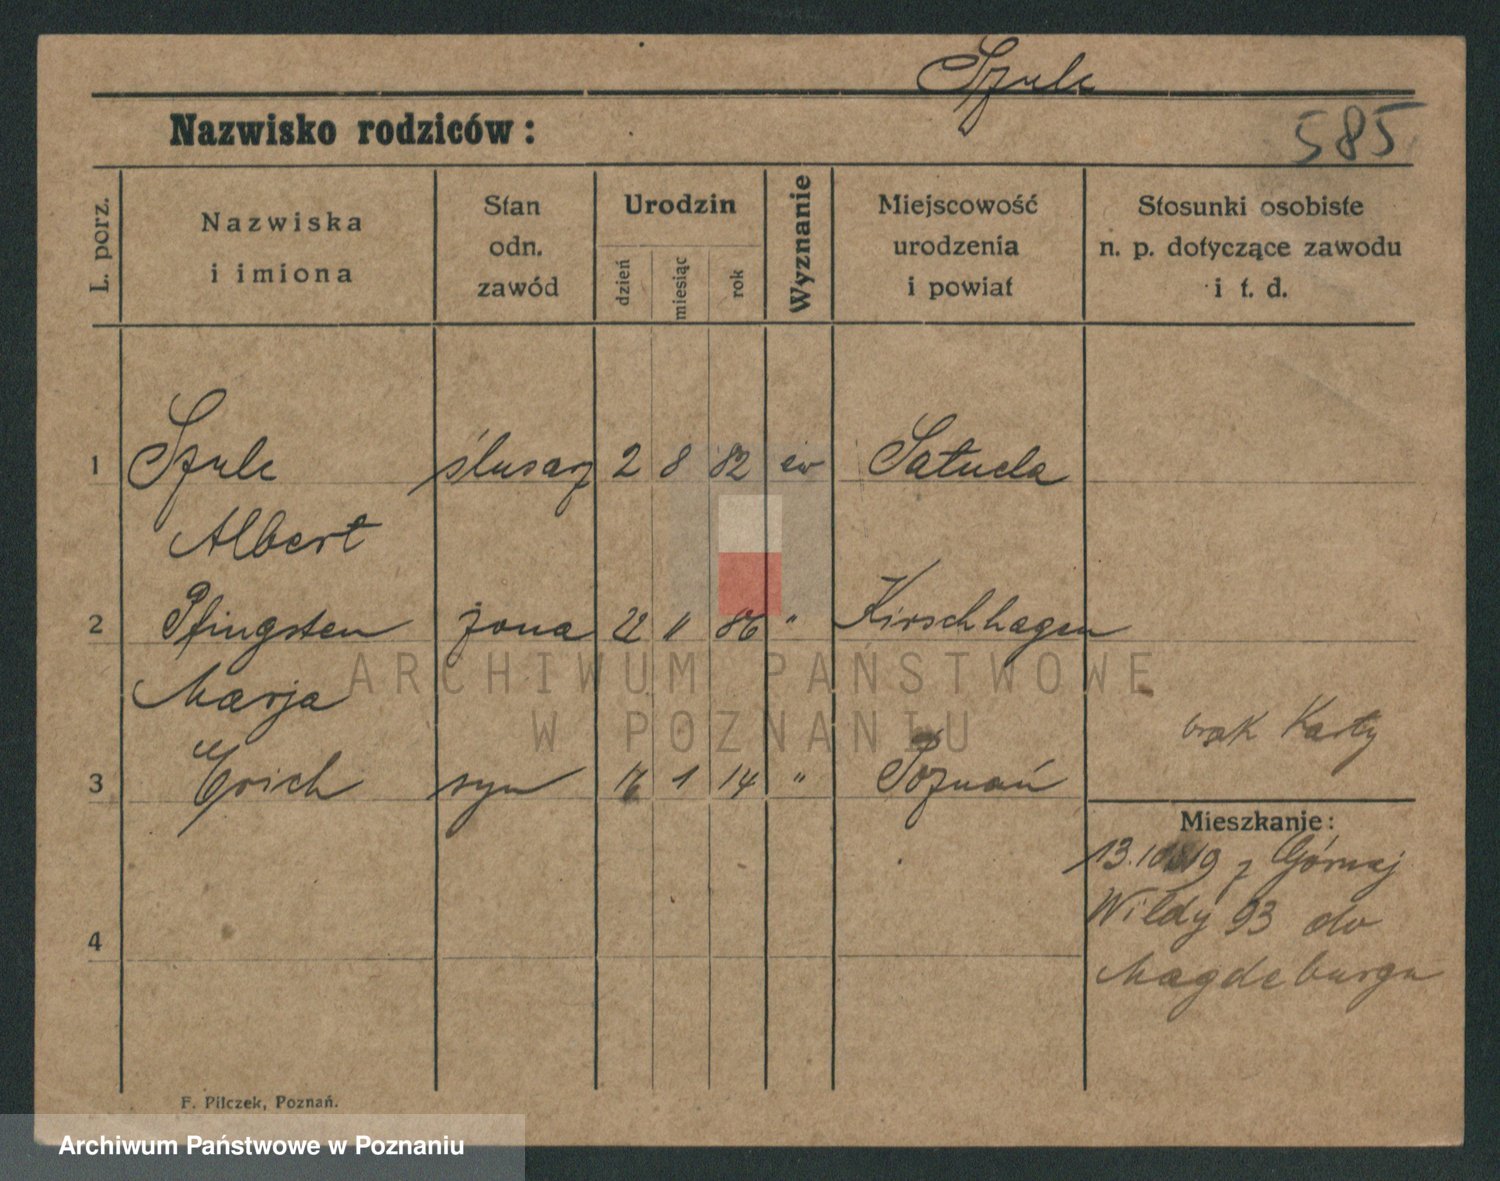 Szulc
Nazwisko rodziców:
585
L. porz.
Nazwiska
i imiona
Stan
odn.
zawód
Urodzin
dzień
miesiąc
rok
Wyznanie
Miejscowość
urodzenia
i powiat
Stosunki osobiste
n. p. dotyczące zawodu
i t. d.
1 Szulc ślusarz 2 8 82 ew
Albert
2 Pfingsten żona 22 11 86 " Kirschhagen
Marja
brak Karty
3 Erich syn 16 1 14 " Poznań
Mieszkanie:
13.10.19 z Górnej
Wildy 93 do
Magdeburga
4
F. Pilczek, Poznań.
ARCHIWUM PAŃSTWOWE
W POZNANIU
Archiwum Państwowe w Poznaniu